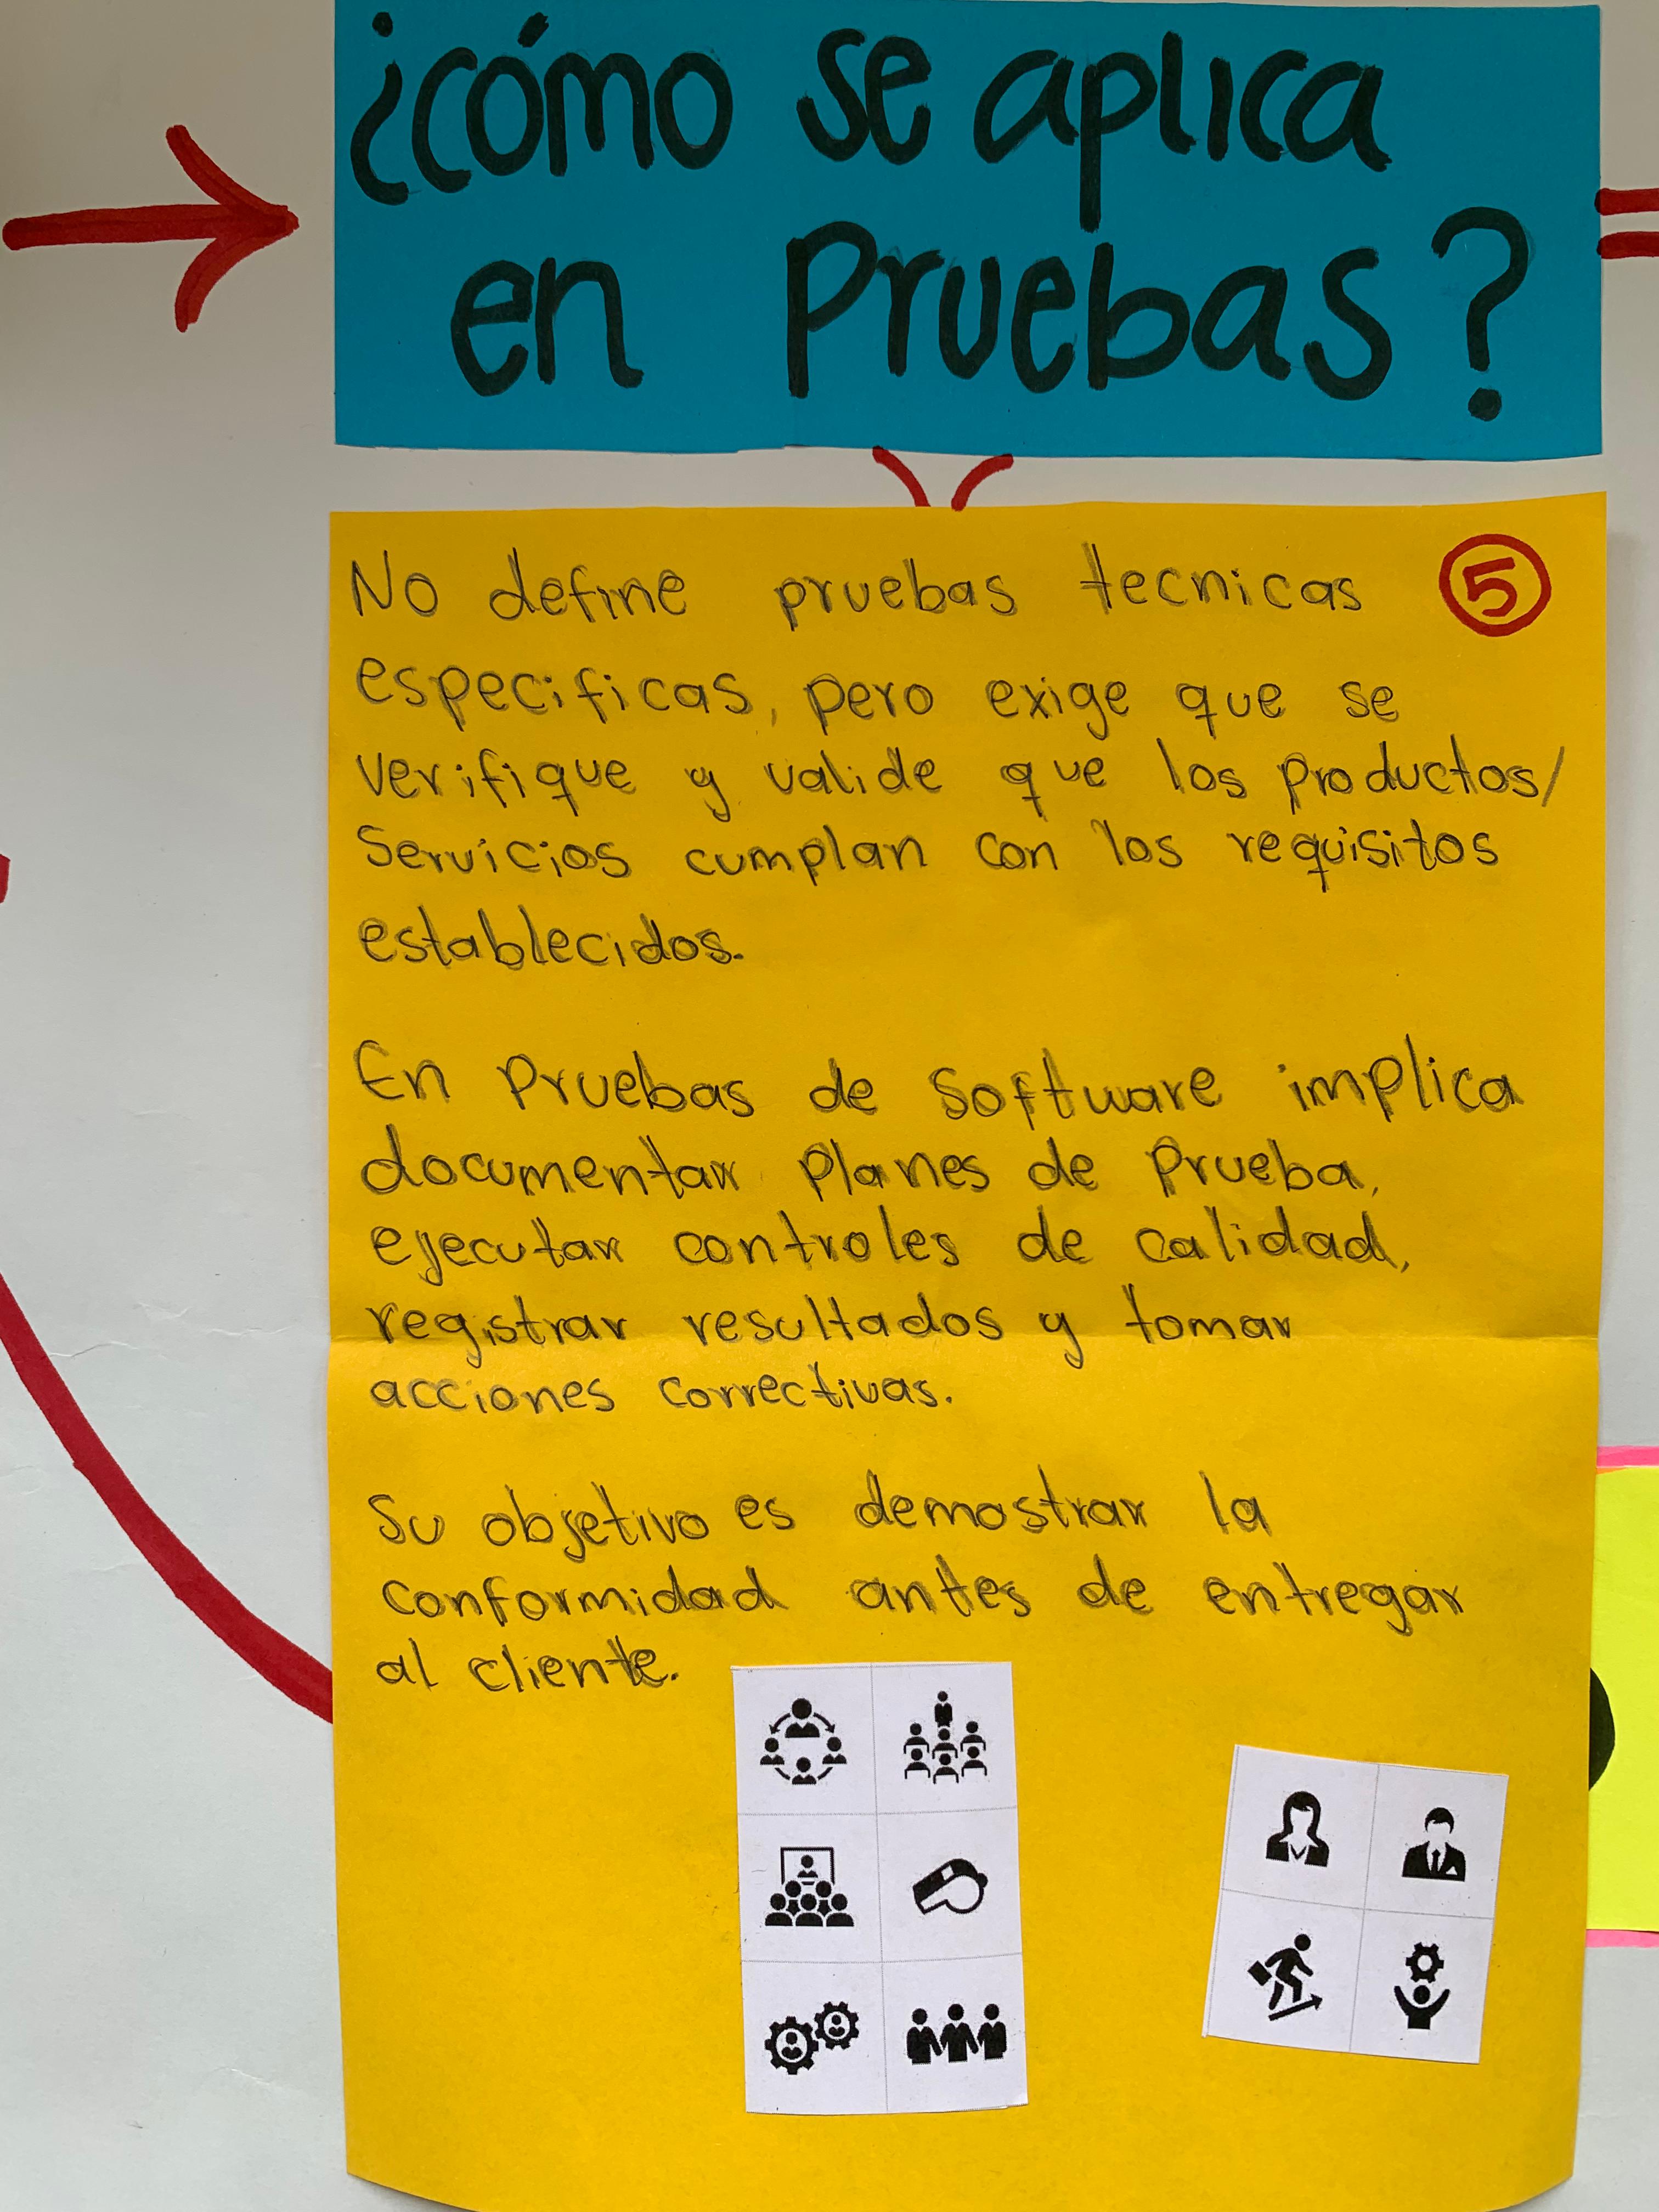 ¿cómo se aplica
en Pruebas?
No define pruebas tecnicas
5
especificas, pero exige que se
verifique y valide que los productos/
Servicios cumplan con los requisitos
establecidos.
En Pruebas de Software implica
documentar Planes de Prueba,
ejecutar controles de calidad,
registrar resultados y tomar
acciones correctivas.
Su objetivo es demostrar la
conformidad antes de entregar
al cliente.